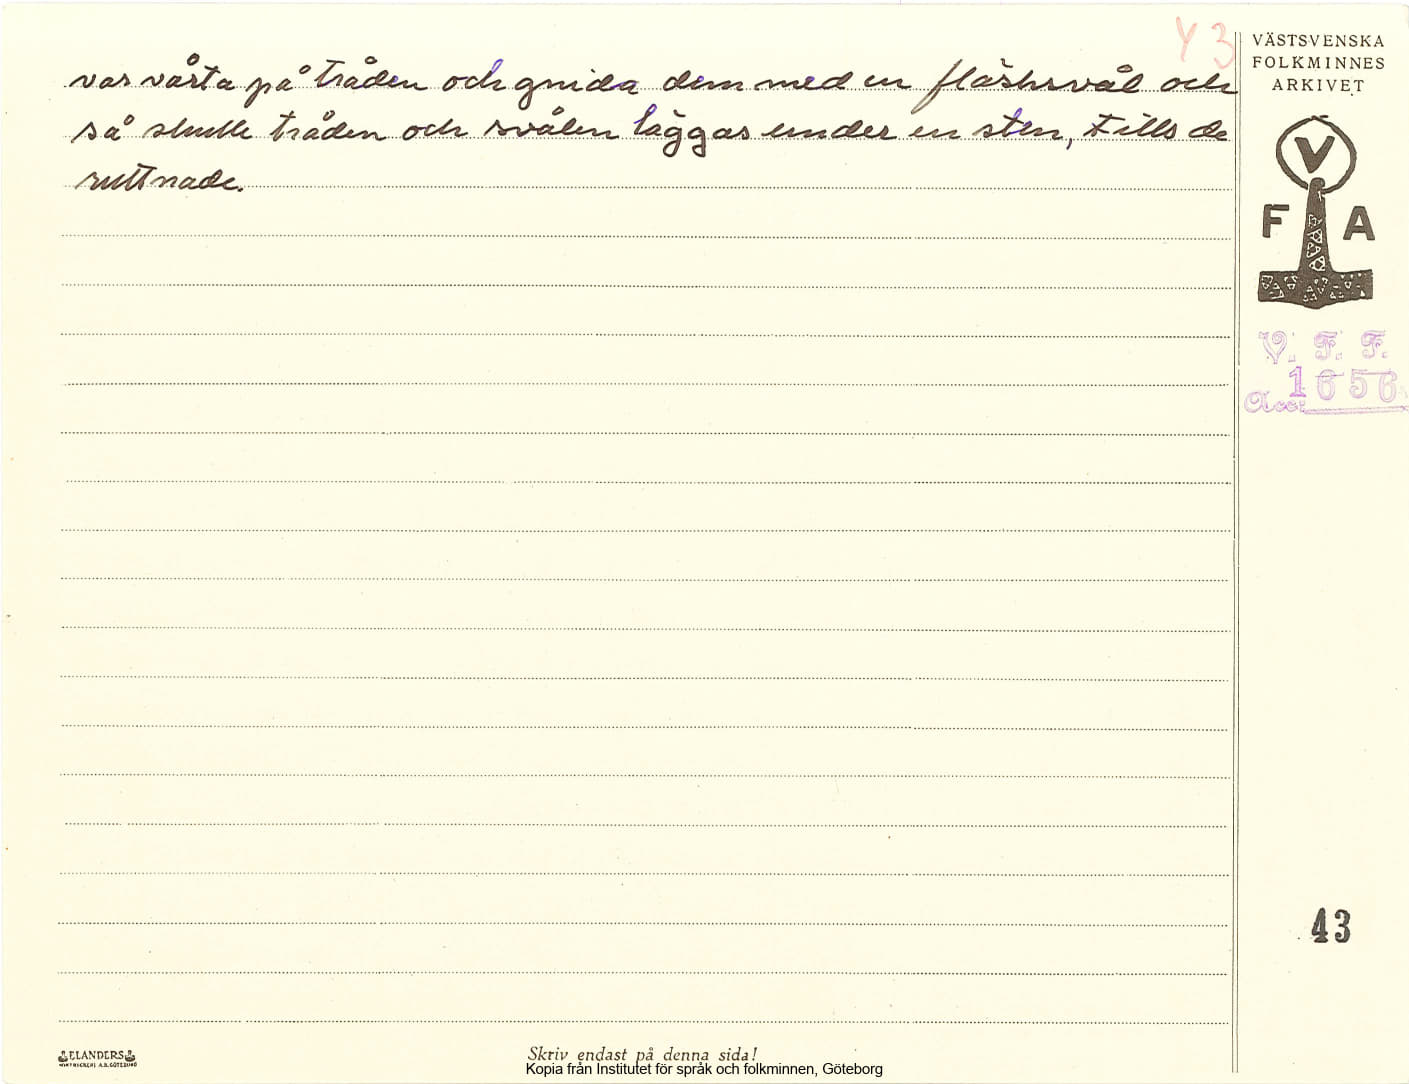 43
var vårta på tråden och gnida dem med en fläsksvål och
så skulle tråden och svålen läggas under en sten, tills de
ruttnade.
VÄSTSVENSKA
FOLKMINNES
ARKIVET
V
F A
V. F. F.
1656
Acc:
43
ELANDERS
Skriv endast på denna sida!
Kopia från Institutet för språk och folkminnen, Göteborg